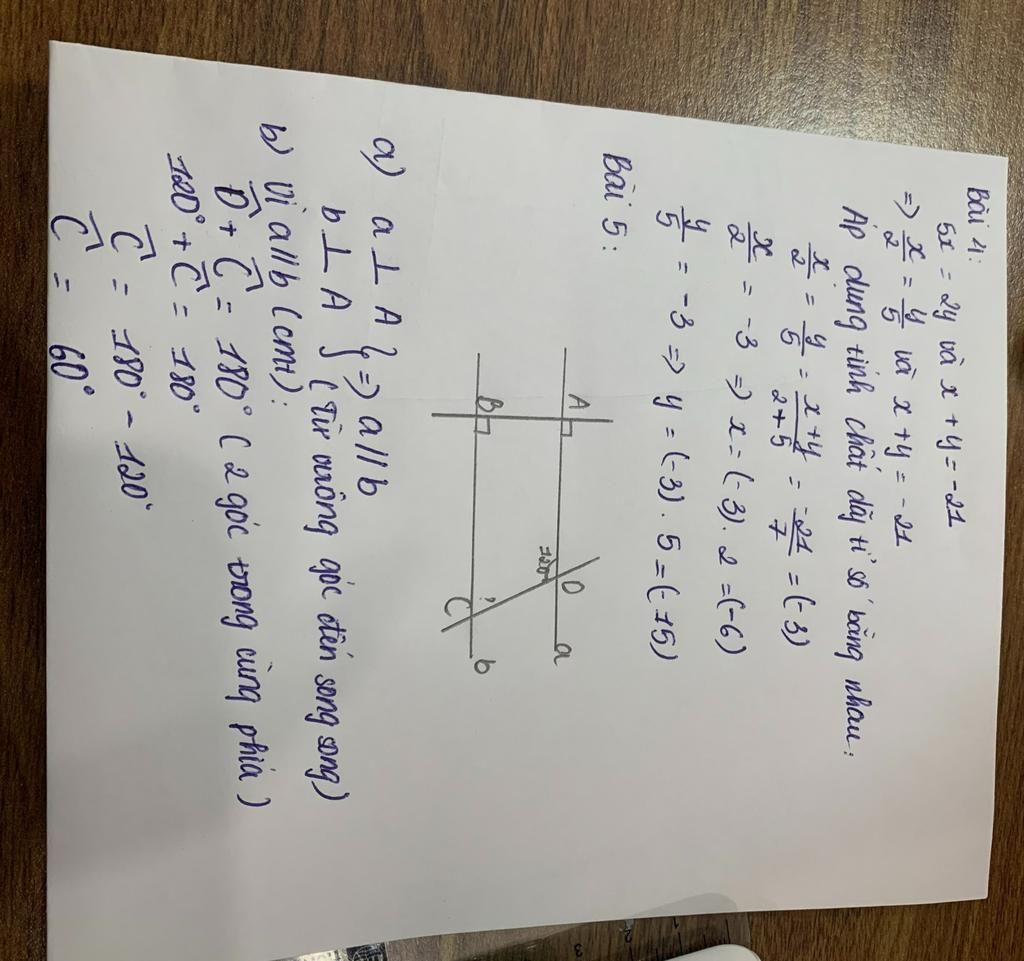 Bài 4:
5x = 2y và x + y = -21
=> x/2 = y/5 và x + y = -21
Áp dụng tính chất dãy tỉ số bằng nhau:
x/2 = y/5 = x+y/2+5 = -21/7 = (-3)
x/2 = -3 => x = (-3). 2 = (-6)
y/5 = -3 => y = (-3). 5 = (-15)
Bài 5:
A D a
120°
B C b
a) a ⊥ A } => a // b
b ⊥ A (Từ vuông góc đến song song)
b) Vì a // b (cmt):
D̂ + Ĉ = 180° ( 2 góc trong cùng phía )
120° + Ĉ = 180°
Ĉ = 180° - 120°
Ĉ = 60°
1 2 3